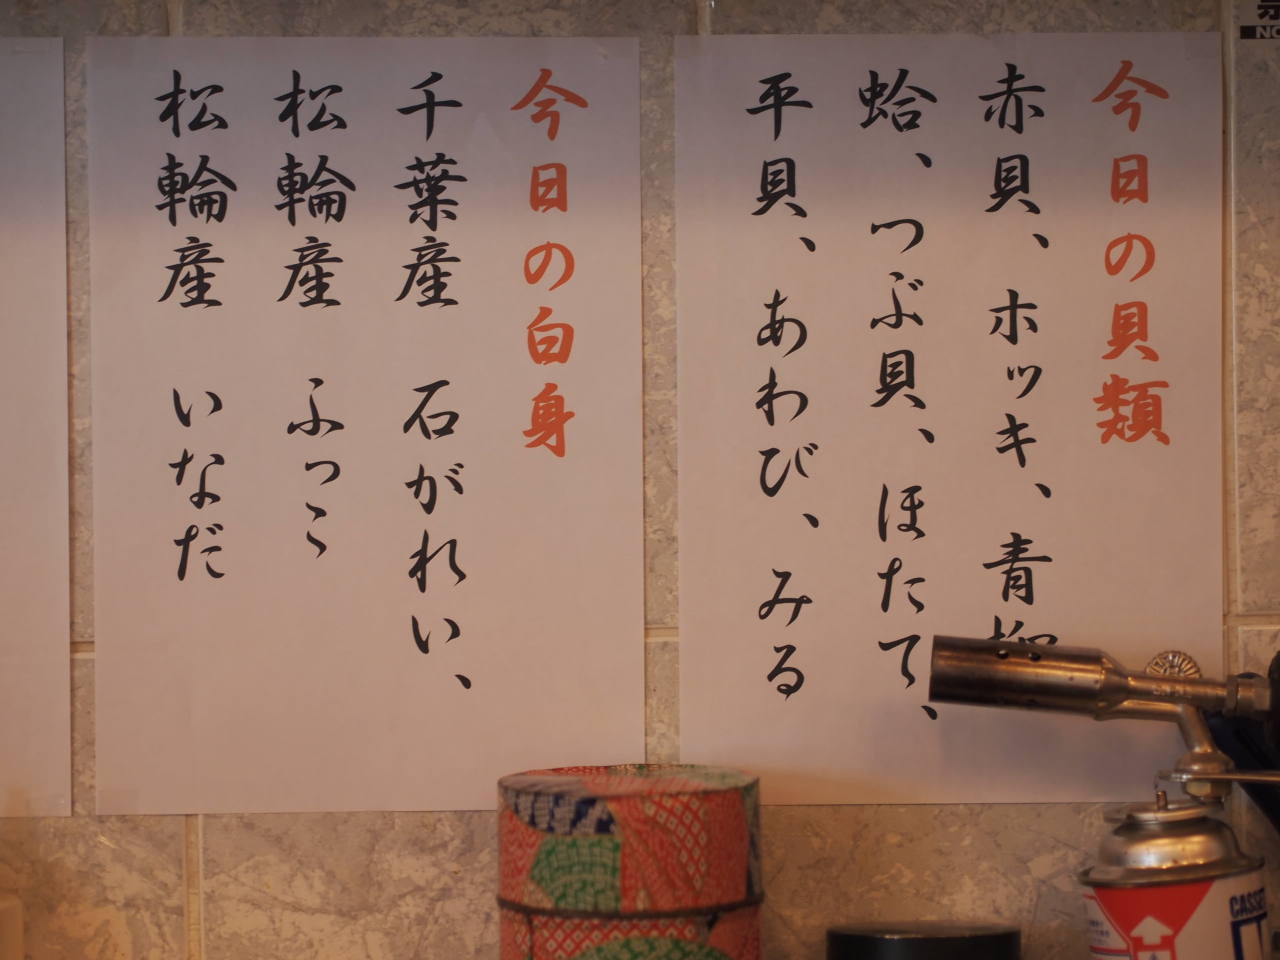 今日の貝類
赤貝、ホッキ、青柳
蛤、つぶ貝、ほたて、
平貝、あわび、みる
今日の白身
千葉産 石がれい、
松輪産 ふっこ
松輪産 いなだ
CASSET
NO